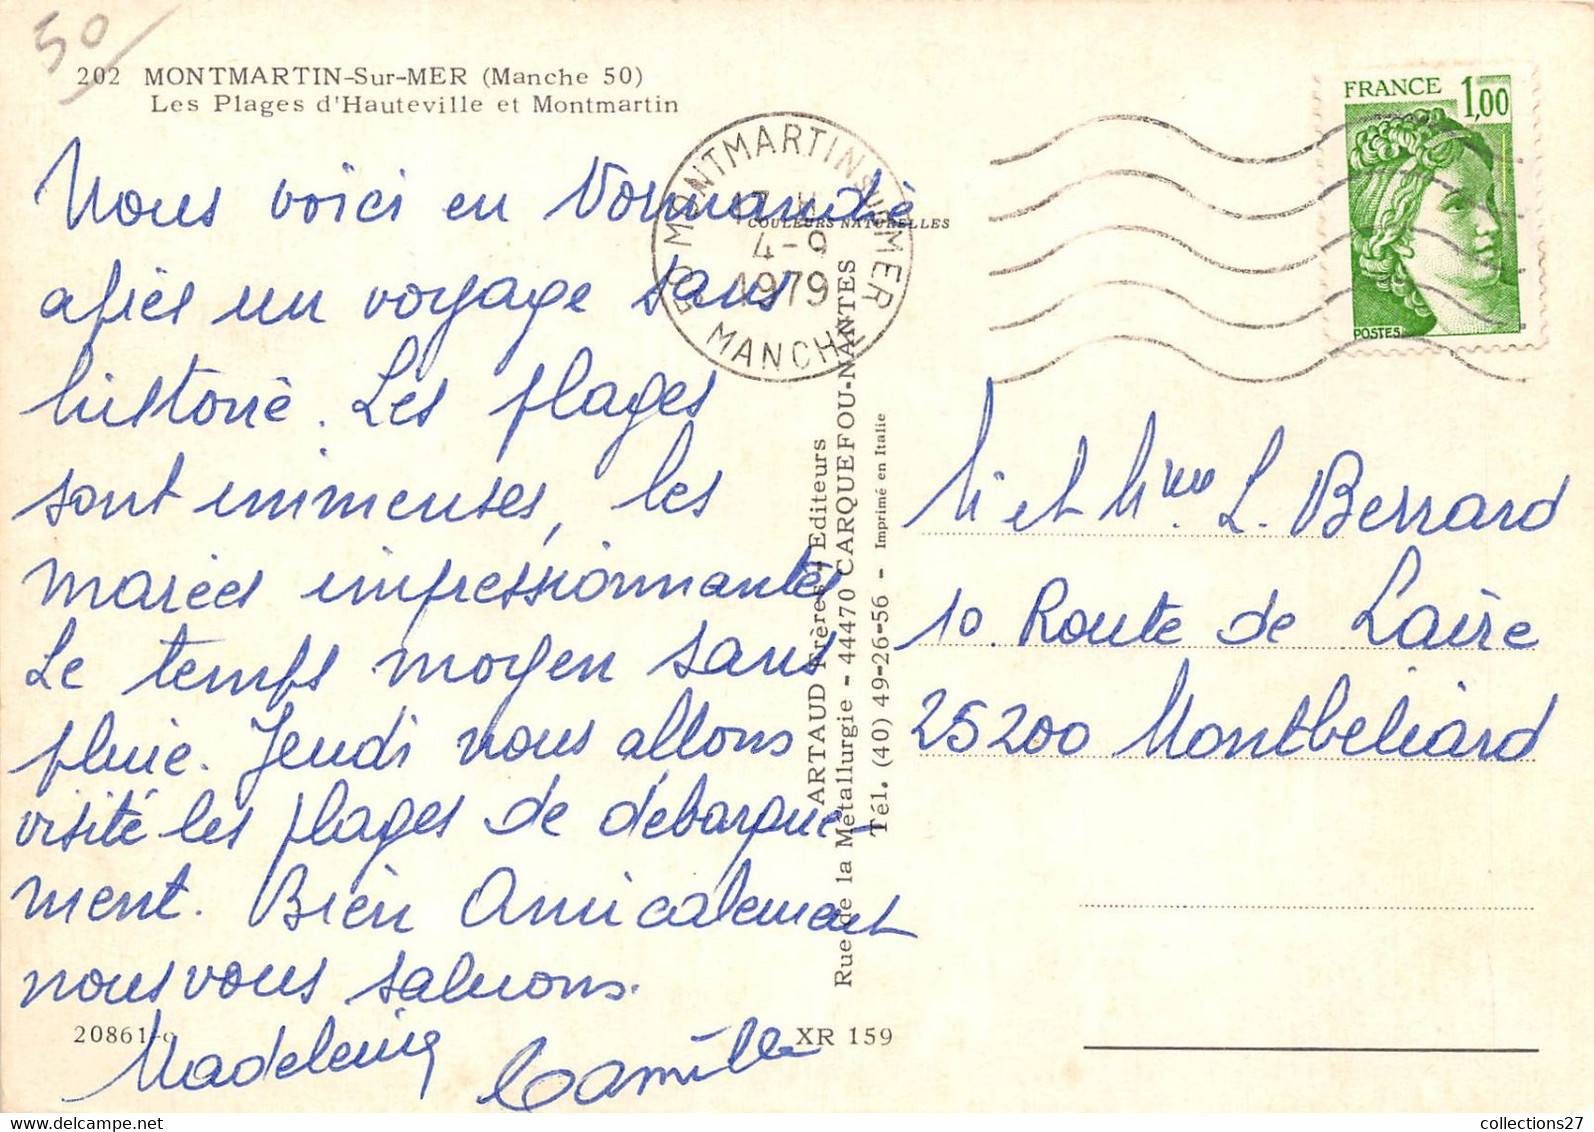 50
202 MONTMARTIN-Sur-MER (Manche 50)
Les Plages d'Hauteville et Montmartin
Nous voici en Normandie
après un voyage sans
histoire. Les plages
sont immenses, les
marées impressionnantes
Le temps moyen sans
pluie. Jeudi nous allons
visité les plages de débarque-
ment. Bien Amicalement
nous vous saluons.
Madeleine Camille
20861-c
XR 159
50 MONTMARTIN S/ MER
17 H
4-9
1979
MANCHE
COULEURS NATURELLES
ARTAUD Frères - Editeurs
Rue de la Métallurgie - 44470 CARQUEFOU-NANTES
Tél. (40) 49-26-56 - Imprimé en Italie
FRANCE 1,00
POSTES
M et Mme. L. Berrard
10. Route de Laire
25200 Montbeliard
collections27